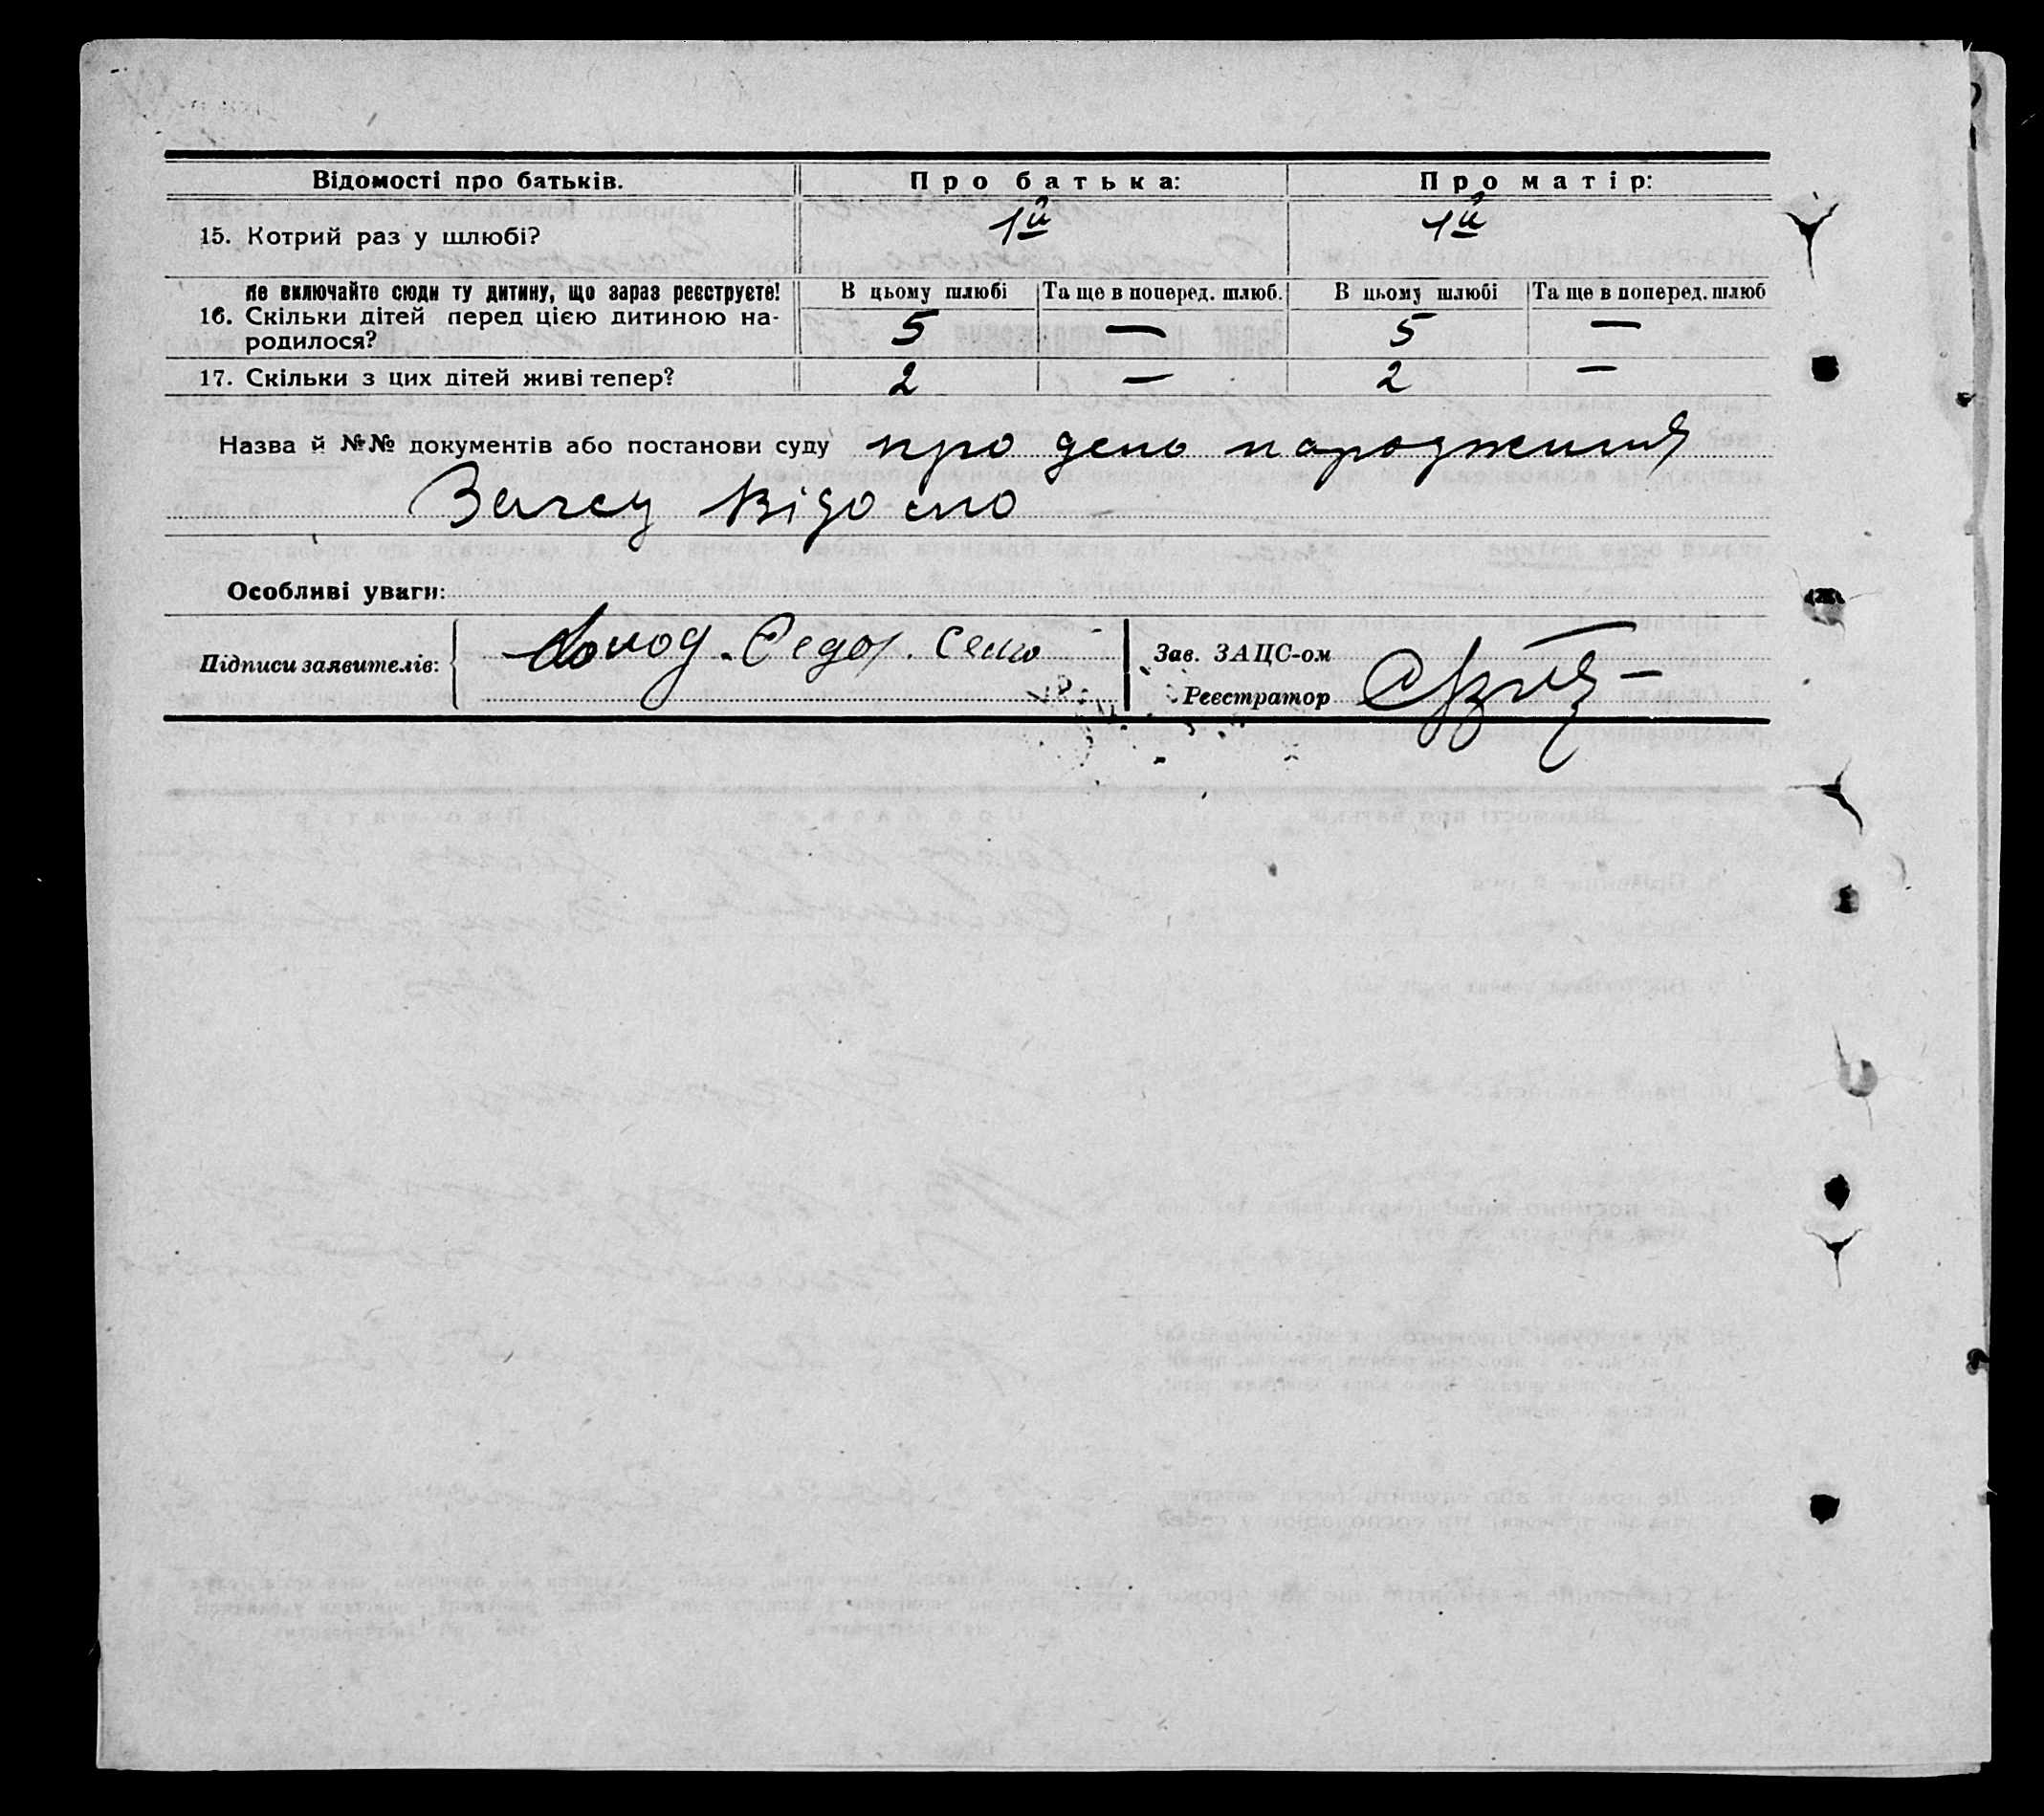 Відомості про батьків. Про батька: Про матір:
15. Котрий раз у шлюбі? 1й 1й
Не включайте сюди ту дитину, що зараз реєструєте! В цьому шлюбі Та ще в поперед. шлюб. В цьому шлюбі Та ще в поперед. шлюб
16. Скільки дітей перед цією дитиною на-
родилося? 5 — 5 —
17. Скільки з цих дітей живі тепер? 2 — 2 —
Назва й №№ документів або постанови суду про день народження
Загсу відомо
Особливі уваги:
Підписи заявителів:
Зав. ЗАЦС-ом
Реєстратор